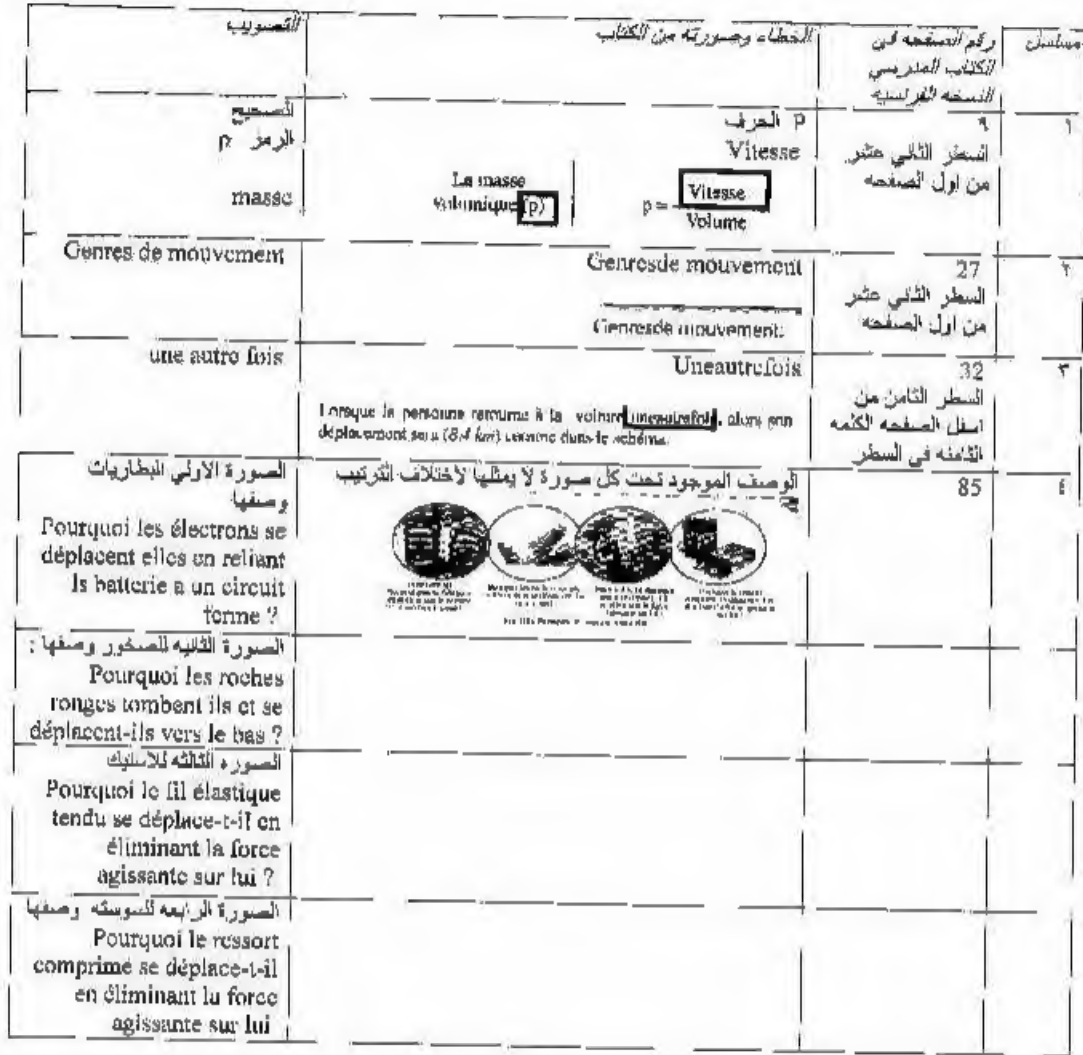 مسلسل
رقم الصفحه في
الكتاب المدرسي
النسخه الفرنسيه
الخطاء وصورته من الكتاب
التصويب
١
٩
السطر الثاني عشر
من اول الصفحه
P الحرف
Vitesse
La masse
volumique (p)
p = Vitesse
Volume
الصحيح
الرمز p
masse
٢
27
السطر الثاني عشر
من اول الصفحه
Genresde mouvement
Genresde mouvement:
Genres de mouvement
٣
32
السطر الثامن من
اسفل الصفحه الكلمه
الثامنه في السطر
Uneautrefois
Lorsque la personne retourne à la voiture uneautrefois, alors son
déplacement sera (8.4 km) comme dans le schéma.
une autre fois
٤
85
الوصف الموجود تحت كل صورة لا يمثلها لأختلاف الترتيب
الصورة الاولي للبطاريات
وصفها
Pourquoi les électrons se
déplacent elles en reliant
ls batterie a un circuit
forme ?
الصورة الثانيه للصخور وصفها :
Pourquoi les roches
ronges tombent ils et se
déplacent-ils vers le bas ?
الصوره الثالثه للاستيك
Pourquoi le fil élastique
tendu se déplace-t-il en
éliminant la force
agissante sur lui ?
الصورة الرابعه للسوسته وصفها
Pourquoi le ressort
comprimé se déplace-t-il
en éliminant la force
agissante sur lui